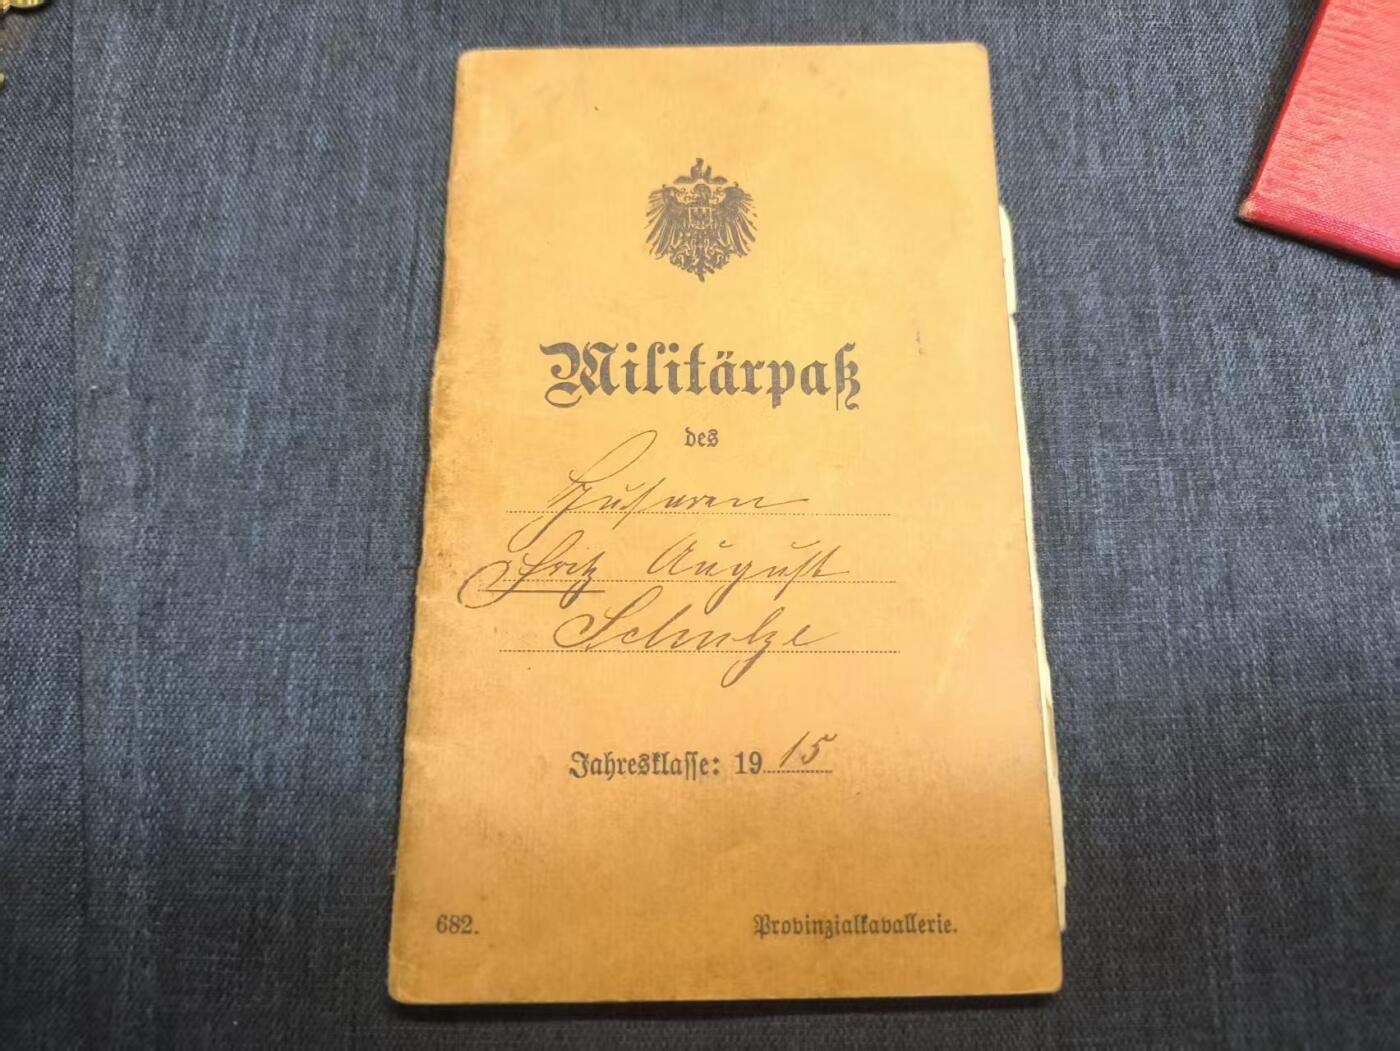 Militärpaß
des
Husaren
Fritz August
Schulze
Jahresklasse: 1915
682.
Provinzialkavallerie.